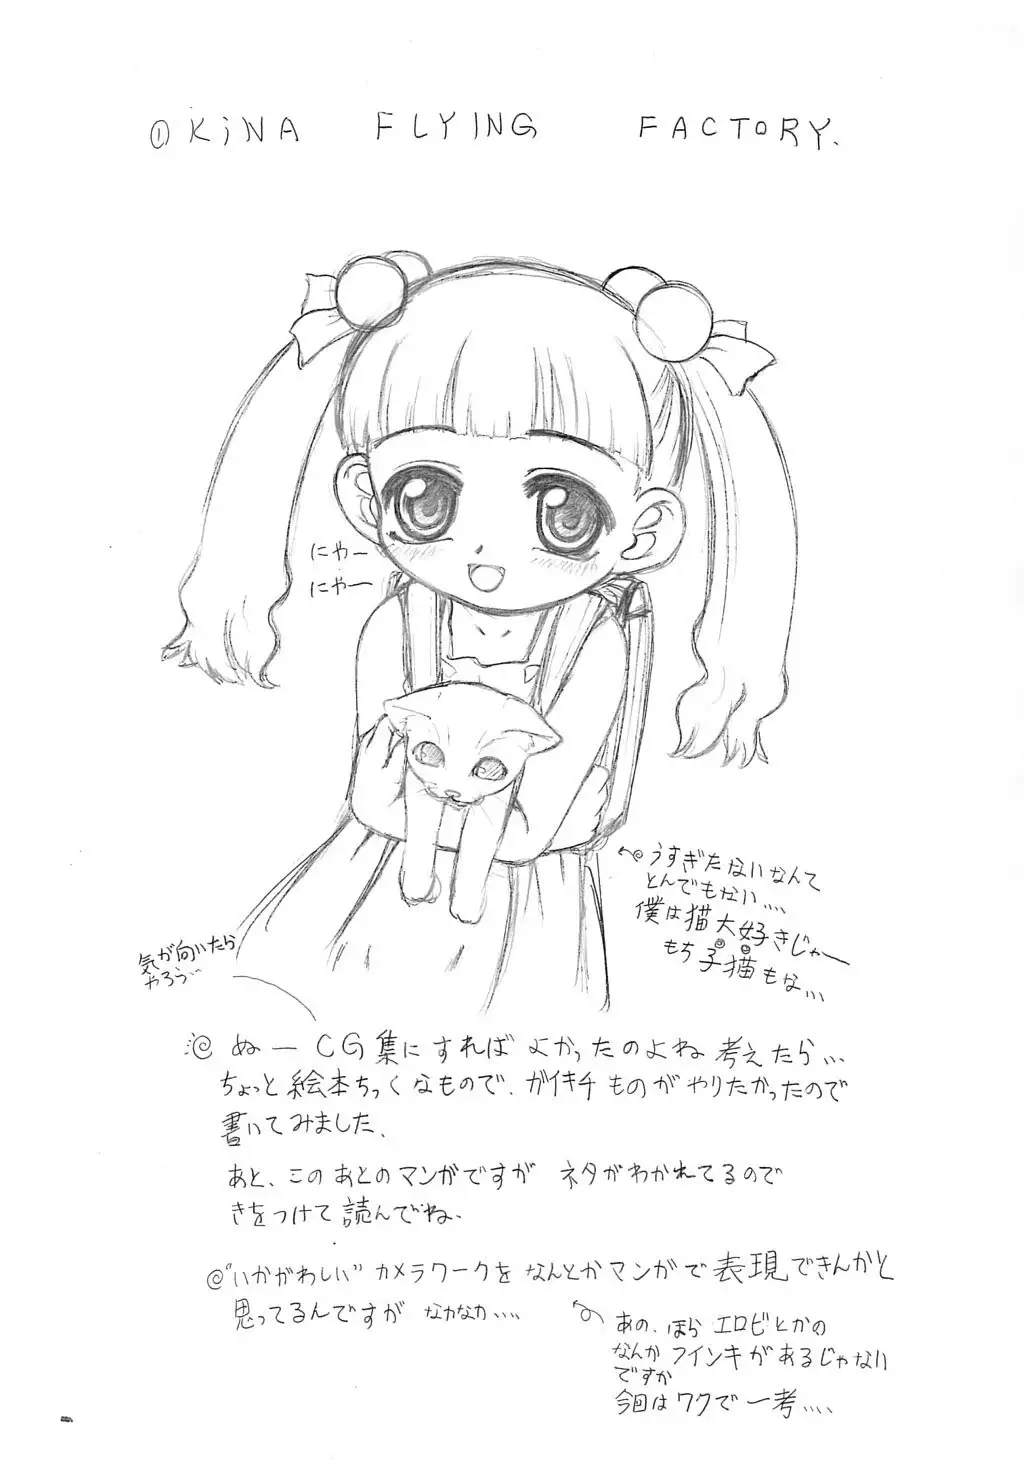 ①KiNA FLYING FACTORY.
にゃー
にゃー
うすぎたないなんて
とんでもない....
僕は猫大好きじゃー
もち子猫もな...
気が向いたら
やろう...
@ ぬー CG集にすればよかったのよね 考えたら...
ちょっと絵本ちっくなもので、ガイキチものがやりたかったので
書いてみました.
あと、このあとのマンガですが ネタがわかれてるので
きをつけて読んでね.
@"いかがわしい" カメラワークを なんとかマンガで表現できんかと
思ってるんですが なかなか....
あの、ほら エロビとかの
なんか フインキがあるじゃない
ですか
今回はワクで一考....